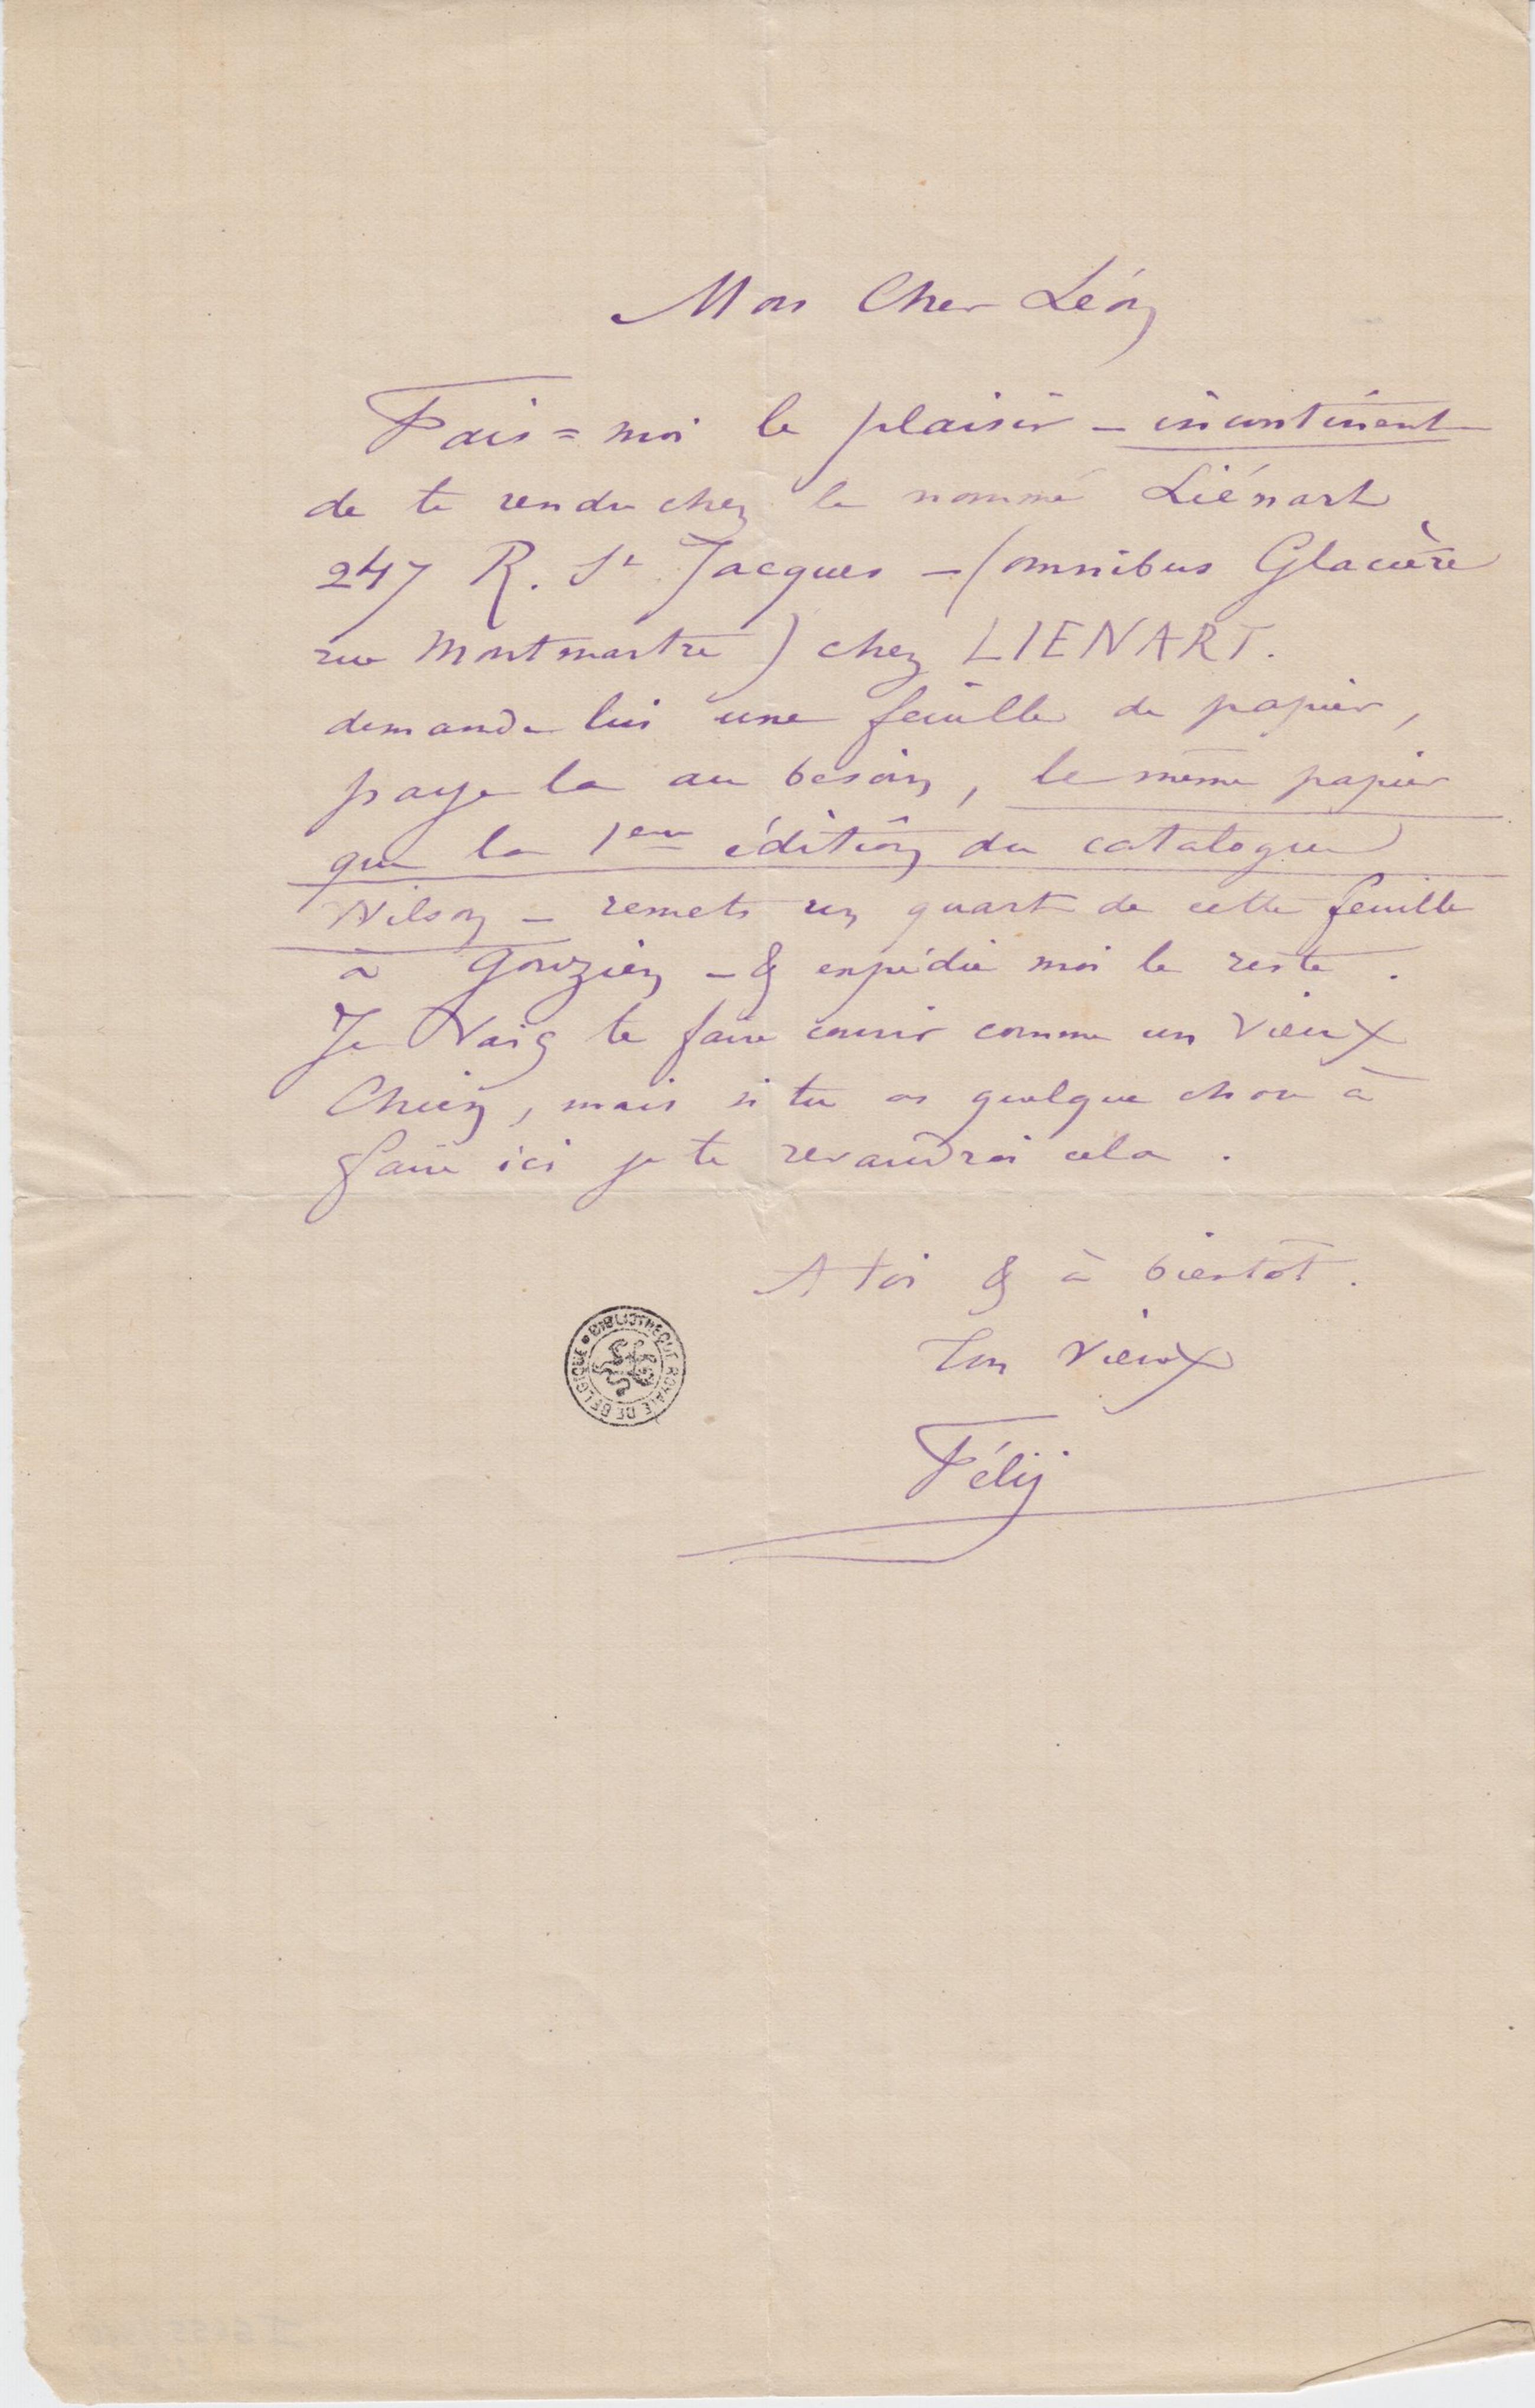 Mon Cher Léon
Fais=moi le plaisir – incontinent
de te rendre chez le nommé Liénart
247 R. St Jacques – (omnibus Glacière
rue Montmartre) chez LIENART.
demande lui une feuille de papier,
paye la au besoin, le même papier
que la 1ere édition du catalogue
Wilson – remets un quart de cette feuille
à Gouzien – & expédie moi le reste.
Je Vais te faire courir comme un vieux
Chien, mais si tu as quelque chose à
faire ici je te revaudrai cela.
A toi & à bientôt.
Ton vieux
BIBLIOTHEQUE ROYALE DE BELGIQUE
Fély